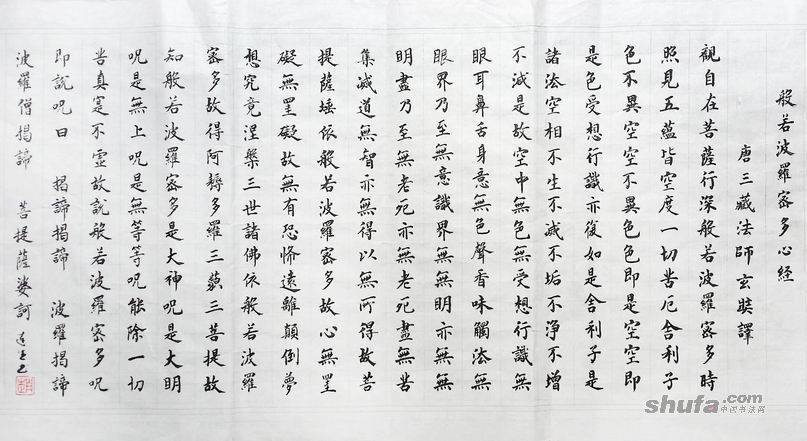 般若波羅密多心經
唐三藏法師玄奘譯
觀自在菩薩行深般若波羅密多時
照見五蘊皆空度一切苦厄舍利子
色不異空空不異色色即是空空即
是色受想行識亦復如是舍利子是
諸法空相不生不滅不垢不淨不增
不減是故空中無色無受想行識無
眼耳鼻舌身意無色聲香味觸法無
眼界乃至無意識界無無明亦無無
明盡乃至無老死亦無老死盡無苦
集滅道無智亦無得以無所得故菩
提薩埵依般若波羅密多故心無罣
礙無罣礙故無有恐怖遠離顛倒夢
想究竟涅槃三世諸佛依般若波羅
密多故得阿耨多羅三藐三菩提故
知般若波羅密多是大神呪是大明
呪是無上呪是無等等呪能除一切
苦真寔不虛故說般若波羅密多呪
即說呪曰 揭諦揭諦 波羅揭諦
波羅僧揭諦 菩提薩婆訶
shufa.com
中国书法网